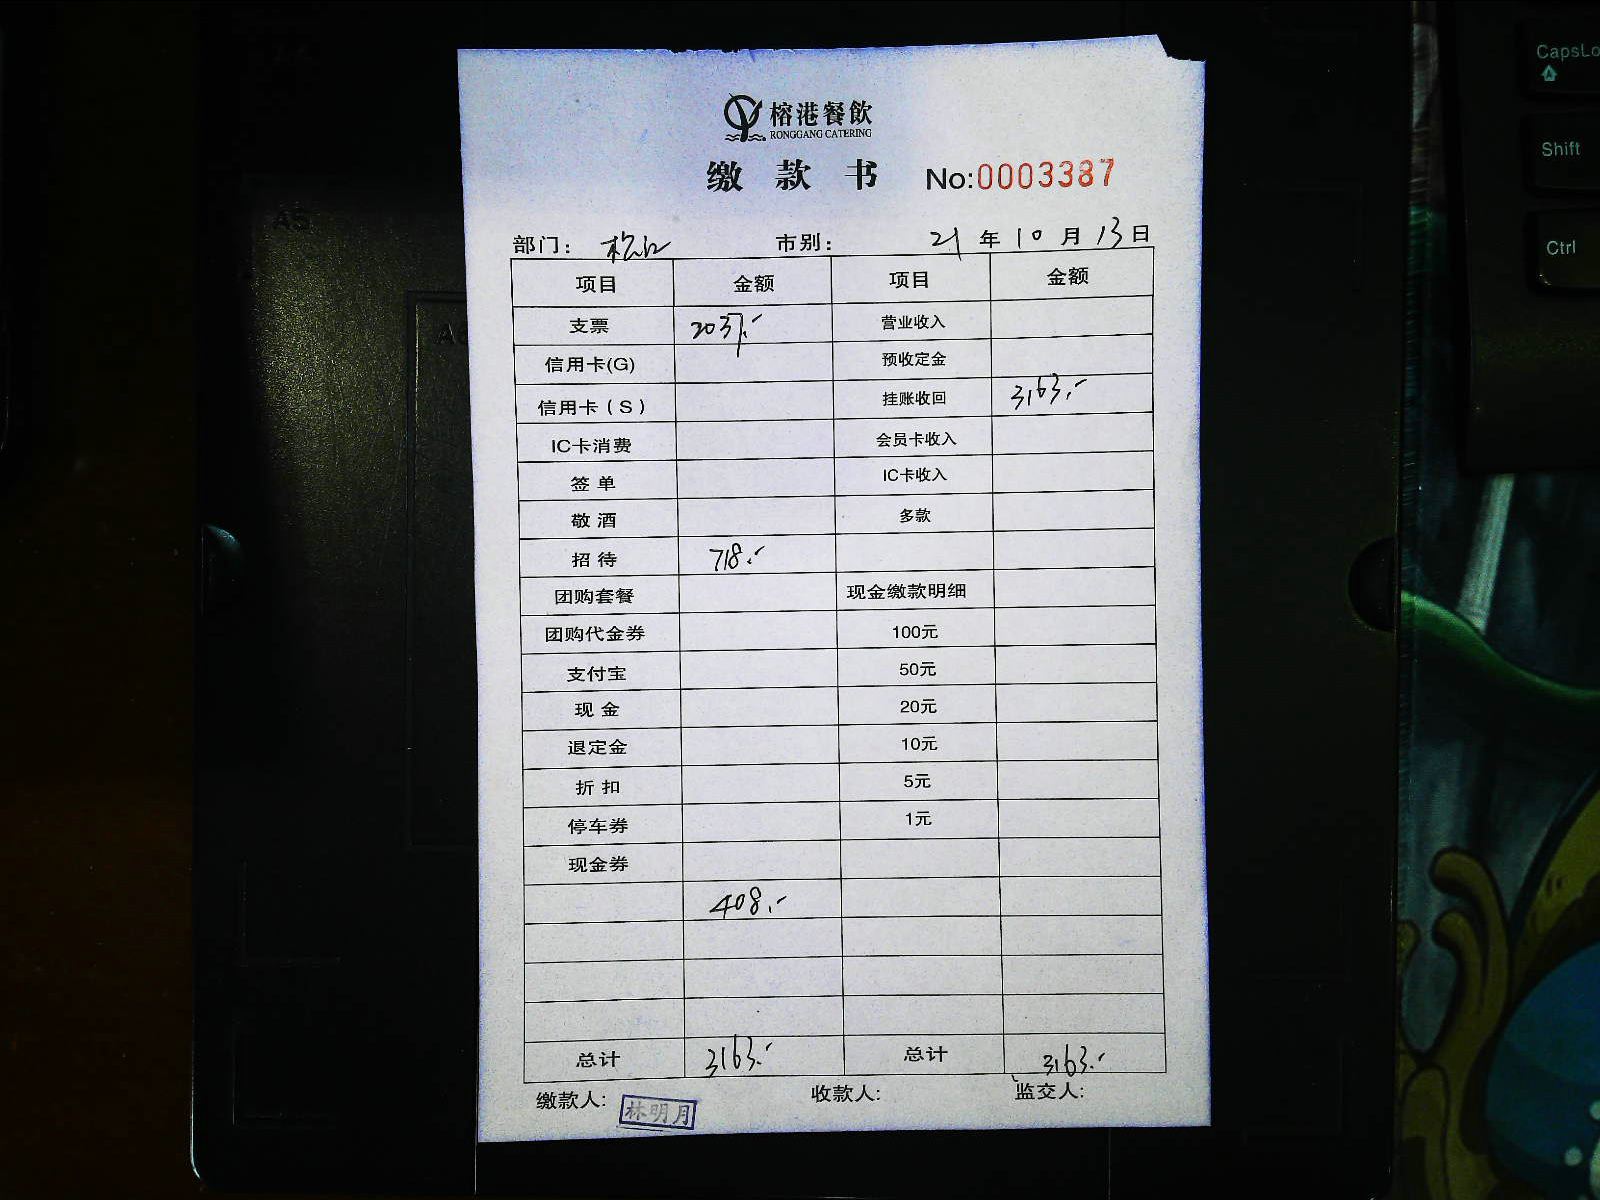 榕港餐飲
RONGGANG CATERING
缴 款 书 No:0003387
部门: 松江 市别: 21 年 10 月 13 日
项目 金额 项目 金额
支票 2037.- 营业收入
信用卡(G) 预收定金
信用卡(S) 挂账收回 3163.-
IC卡消费 会员卡收入
签 单 IC卡收入
敬 酒 多款
招 待 718.-
团购套餐 现金缴款明细
团购代金券 100元
支付宝 50元
现 金 20元
退定金 10元
折 扣 5元
停车券 1元
现金券
408.-
总计 3163.- 总计 3163.-
缴款人: 林明月 收款人: 监交人:
CapsLo
Shift
Ctrl
A5